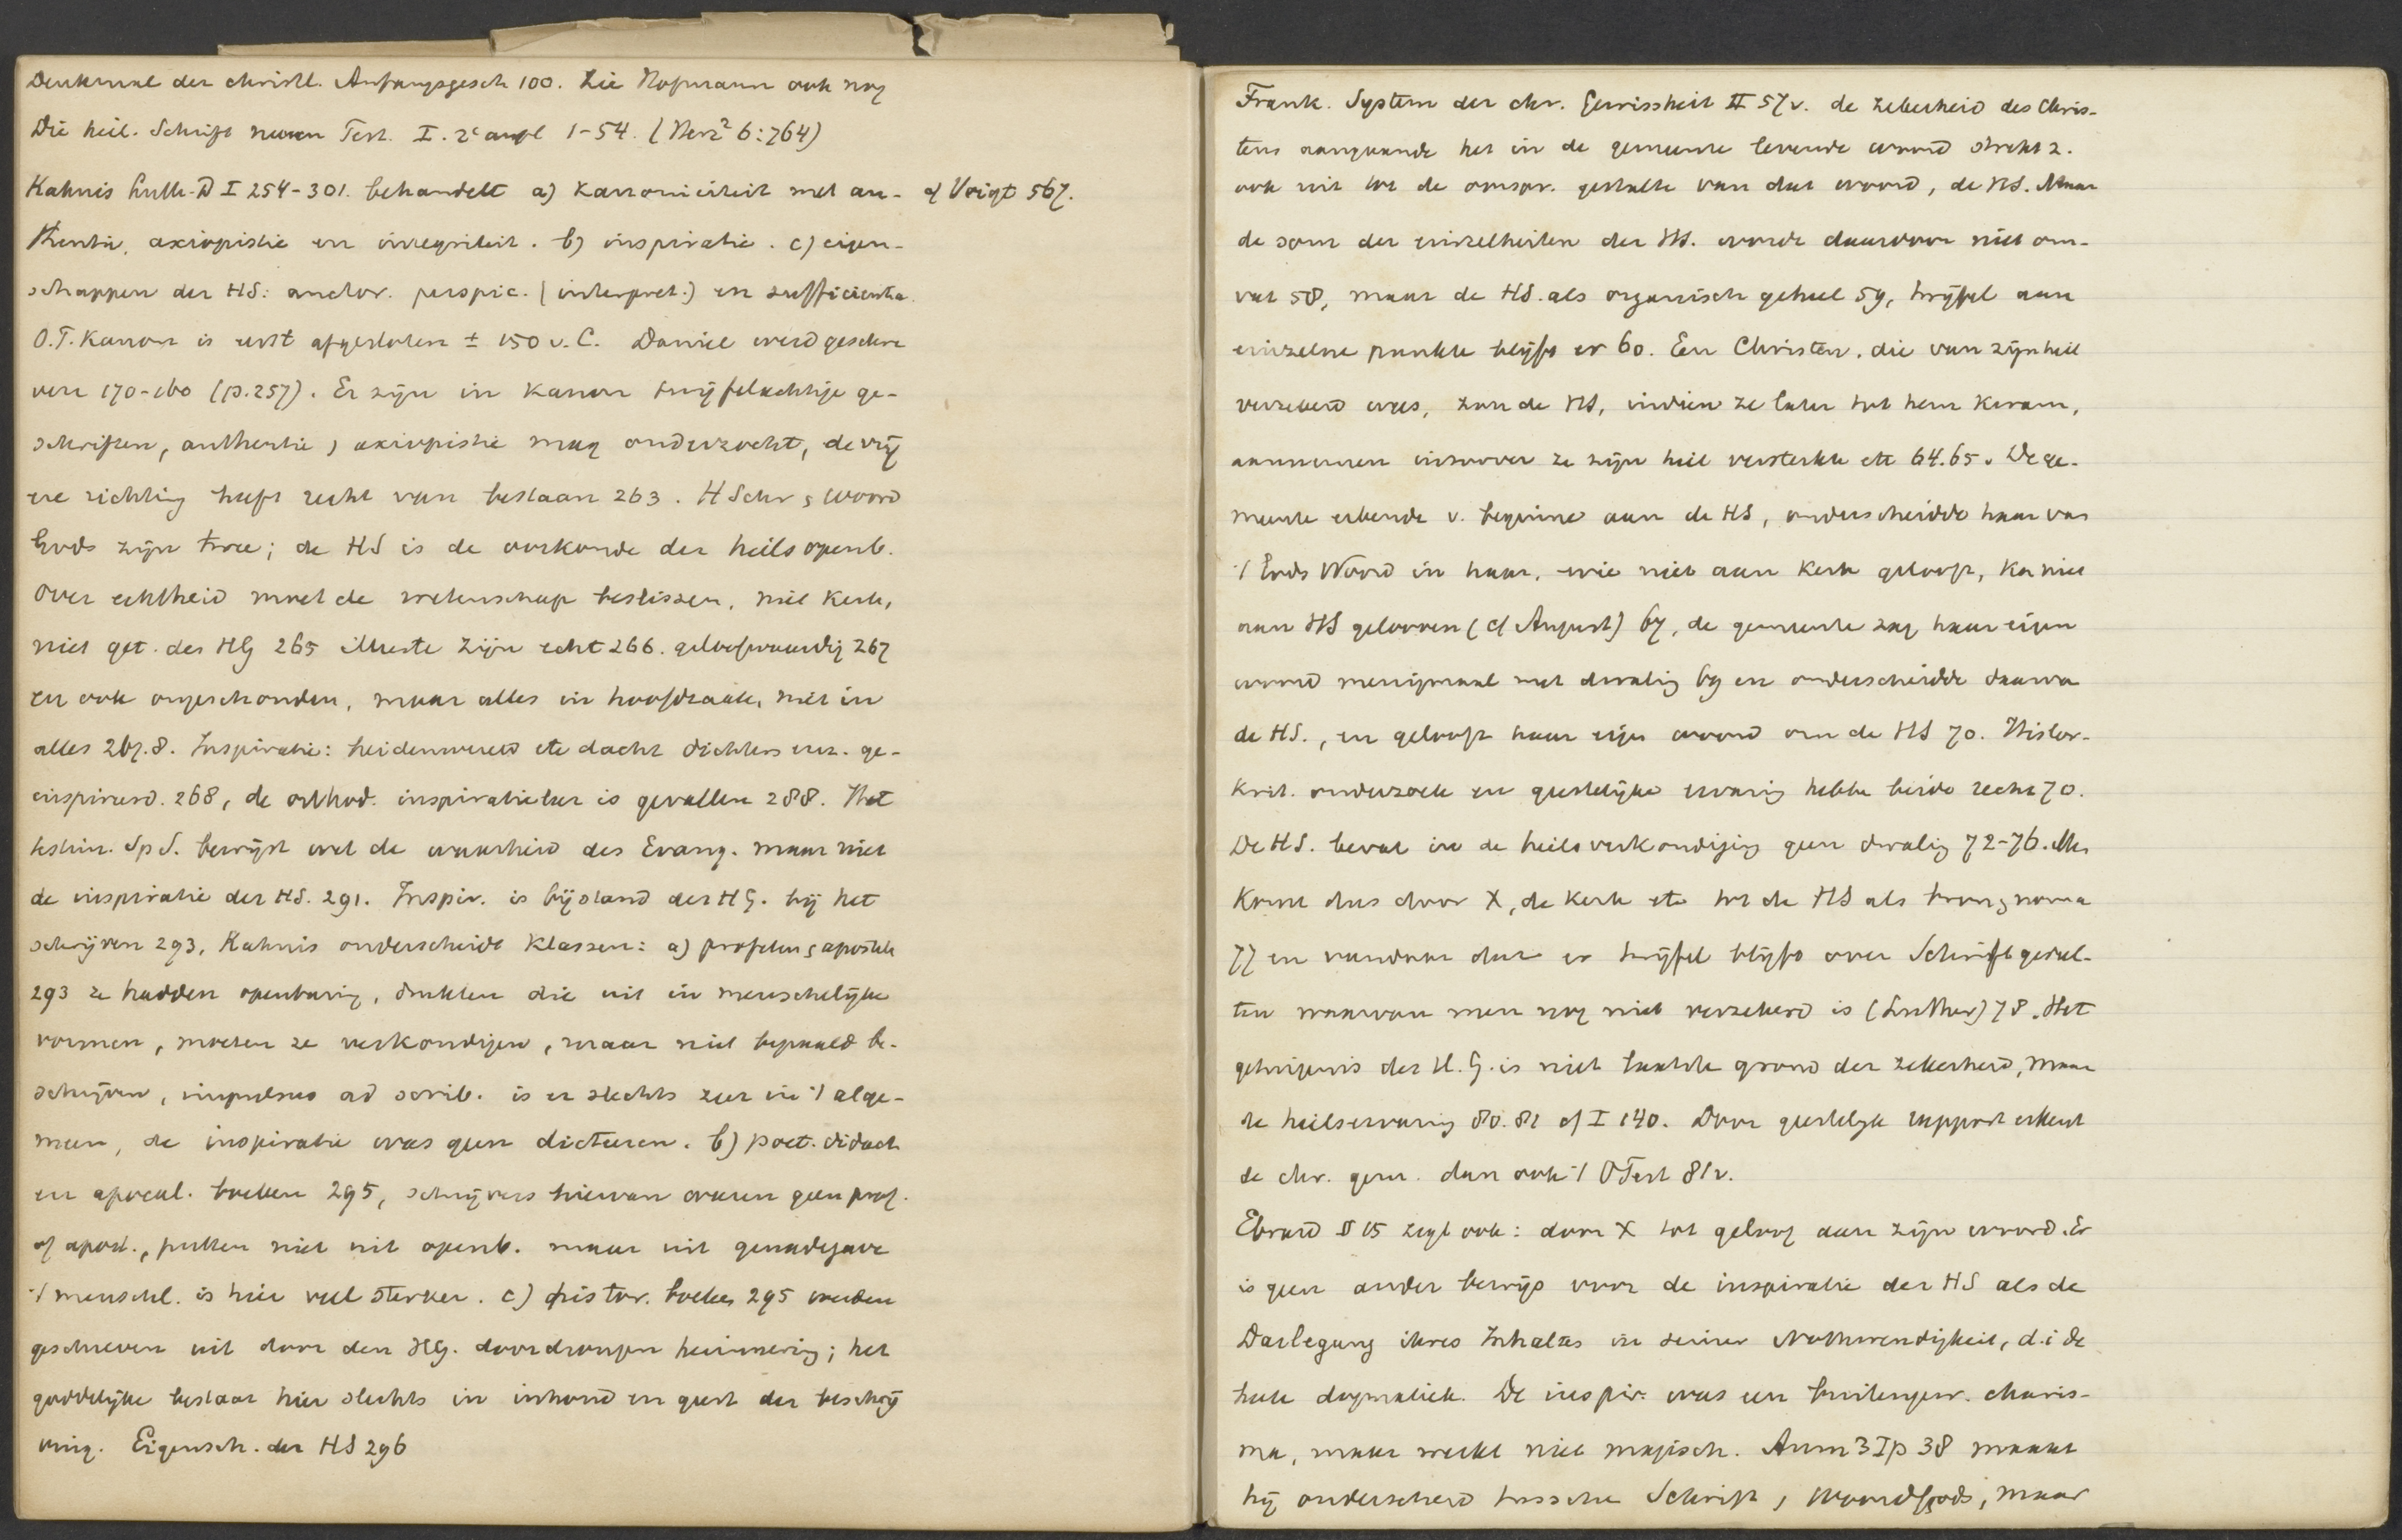 Denkmal der christl. Anfangsgesch 100. Zie Hofmann ook nog
Die heil. Schrift neuen Test. I. 2e aufl 1-54. (Herz² 6:764)
Kahnis Luth. D I 254-301. behandelt a) Kanoniciteit met au- cf Voigt 567.
thentie, axiopistie en integriteit. b) inspiratie. c) eigen-
schappen der HS: auctor. perspic. (interpret.) en sufficientia.
O.T. Kanon is eerst afgesloten ± 150 v. C. Daniel werd geschre
ven 170-160 (p.257). Er zijn in Kanon twijfelachtige ge-
schriften, authentie, axiopistie mag onderzocht, de vrij
ere richting heeft recht van bestaan 263. HSchr, Woord
Gods zijn twee; de HS is de oorkonde der heilsopenb.
Over echtheid moet de wetenschap beslissen, niet Kerk,
niet get. des HG 265 Meeste zijn echt 266. geloofwaardig 267
en ook ongeschonden, maar alles in hoofdzaak, niet in
alles 267.8. Inspiratie: heidenwereld etc dacht dichters enz. ge-
inspireerd. 268, de orthod. inspiratieleer is gevallen 288. Het
testim. Sp S. bewijst wel de waarheid des Evang. maar niet
de inspiratie der HS. 291. Inspir. is bijstand des HG. bij het
schrijven 293, Kahnis onderscheidt Klassen: a) profeten, apostele
293 ze hadden openbaring, drukten die uit in menschelijke
vormen, moeten ze verkondigen, maar niet bepaald be-
schrijven, impulsus ad scrib. is er slechts zeer in 't alge-
meen, de inspiratie was geen dicteeren. b) poet. didact
en apocal. boeken 295, schrijvers hiervan waren geen prof.
of apost., putten niet uit openb. maar uit genadegave
't menschl. is hier veel sterker. c) histor. boeken 295 werden
geschreven uit door den HG. doordrongen herinnering; het
goddelijke bestaat hier slechts in inhoud en geest der beschrij
ving. Eigensch. der HS 296
Frank. System der chr. Gewissheit II 57 v. de zekerheid des Chris-
tens aangaande het in de gemeente levende woord strekt z.
ook uit tot de oorspr. gestalte van dat woord, de HS. Maar
de som der einzelheiten der HS. wordt daardoor niet om-
vat 58, maar de HS. als organisch geheel 59, twijfel aan
einzelne punkte blijft er 60. Een Christen, die van zijn heil
verzekerd was, zou de HS, indien ze later tot hem kwam,
aannemen inzoover ze zijn heil versterkte etc 64.65. De ge-
meente erkende v. beginne aan de HS, onderscheidde haar van
't Gods Woord in haar, wie niet aan Kerk gelooft, kan niet
aan HS gelooven (cf August) 67, de gemeente zag haar eigen
woord menigmaal met dwaling 69 en onderscheidde daarva
de HS., en gelooft haar eigen woord om de HS 70. Histor-
krit. onderzoek en geestelijke ervaring hebbe beide recht 70.
De HS. bevat in de heilsverkondiging geen dwaling 72-76. Me
komt dus door X, de Kerk etc tot de HS als bron, norma
77 en vandaar dat er twijfel blijft over Schriftgedeel-
ten waarvan men nog niet verzekerd is (Luther) 78. Het
getuigenis des H. G. is niet laatste grond der zekerheid, maar
de heilservaring 80.81 cf I 140. Door geestelijk rapport erkent
de chr. gem. dan ook 't OTest 81v.
Ebrard § 15 zegt ook: door X tot geloof aan zijn woord. Er
is geen ander bewijs voor de inspiratie der HS als de
Darlegung ihres Inhaltes in seiner Nothwendigkeit, d.i de
heele dogmatiek. De inspir. was een buitengew. charis-
ma, maar werkt niet magisch. Anm 3 I p 38 maakt
hij onderscheid tussche Schrift, Woord Gods, maar